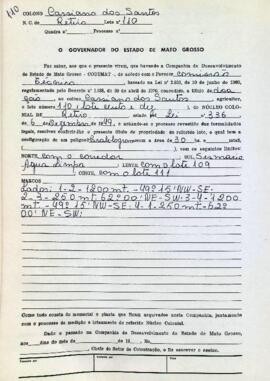 110
COLONO Cassiano dos Santos
N. C. de Retiro Lote n.º 110
Quadra n.º Processo n.º
O GOVERNADOR DO ESTADO DE MATO GROSSO
Faz saber, aos que o presente virem, que havendo a Companhia de Desenvolvimento
do Estado de Mato Grosso - CODEMAT, de acordo com o Parecer Comissão
baseado na Lei n.º de 10 de junho de 1960,
regulamentado pelo Decreto n.º de 20 de abril de 1970, concedido, a título
ção ao colono Cassiano dos Santos, agricultor,
o lote número 110 (lote cento e dez), do NÚCLEO COLONIAL
DE Retiro, estado pela lei n.º 336
de 6 de Dezembro de 1949, e achando-se o processo revestido das formalidades
legais, resolve conferir-lhe o presente título de propriedade do referido lote, o qual tem a
configuração de um polígono com a área de 30 ha.
com os seguintes limites:
NORTE, com o corredor SUL, Sesmaria
Agua Limpa LESTE com o lote 109
OESTE, com o lote 111
MARCOS
Lados: 1-2-1200 mt-49º15'NW-SE-
2-3-250 mt-62º00'NE-SW-3-4-1200
mt-49º15'NW-SE-4-1-250 mt-62º
00'NE-SW
Como tudo consta do memorial e planta que ficam arquivados nesta Companhia, juntamente
com o processo de medição e loteamento do referido Núcleo Colonial.
Dado e passado na Companhia de Desenvolvimento do Estado de Mato Grosso,
aos dias do mês de de 19 Eu,
Chefe do Setor de Colonização, o fiz escrever e assino.